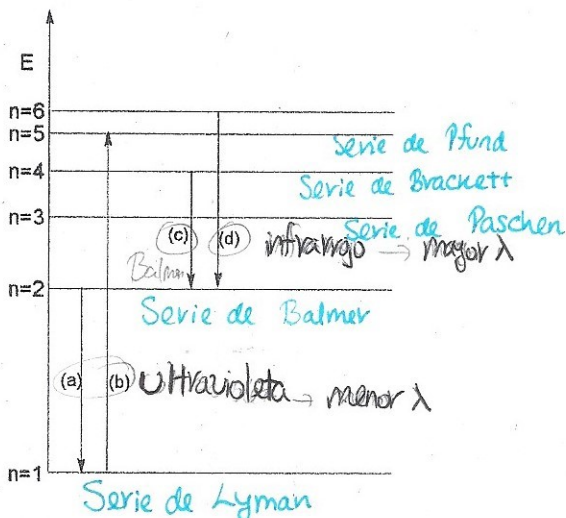 E
n=6
n=5
Serie de Pfund
n=4
Serie de Brackett
n=3
Serie de Paschen
(c) (d) infrarrojo → mayor λ
Balmer
n=2
Serie de Balmer
(a) (b) Ultravioleta → menor λ
n=1
Serie de Lyman